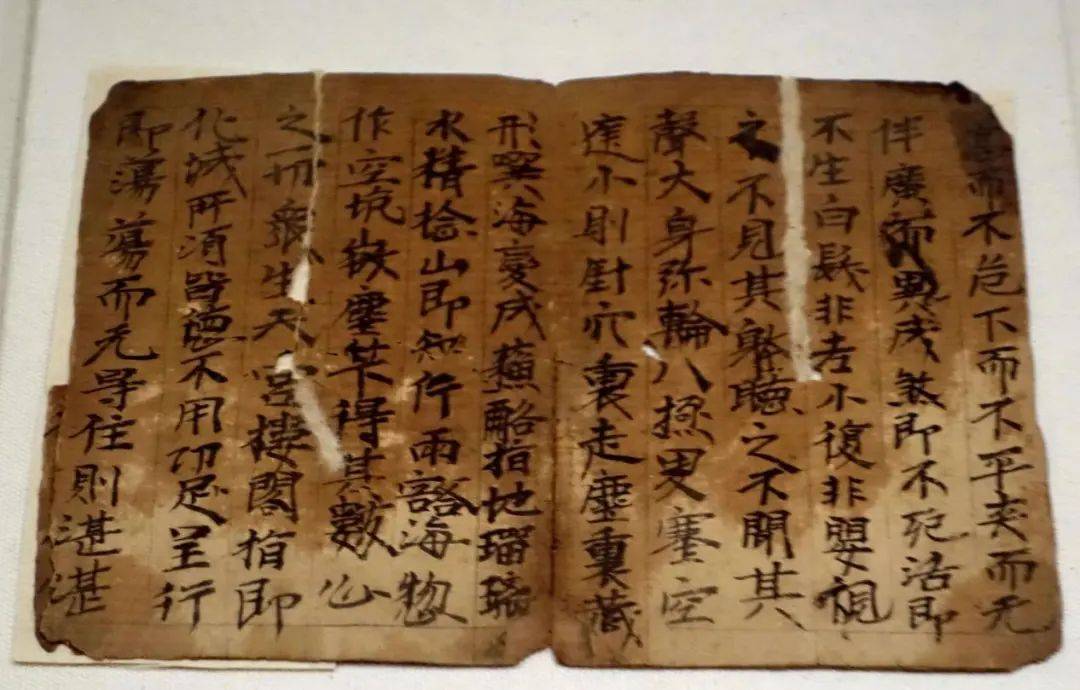 而不危下而不平夹而无
伴廣而異成煞即不死活即
不生白髮非老小復非嬰視
之不見其聽之不聞其
聲大身弥輪八極叟塞空
達小則針穴裏走塵裏藏
形冥海變成蘓酪指地瑠璃
水精捻山即知斤兩豁海惣
作空坑嶽塵草得其數心
之而衆生天宮樓閣指即
化城所須皆徳不用功足呈行
即蕩蕩而无导住則湛湛